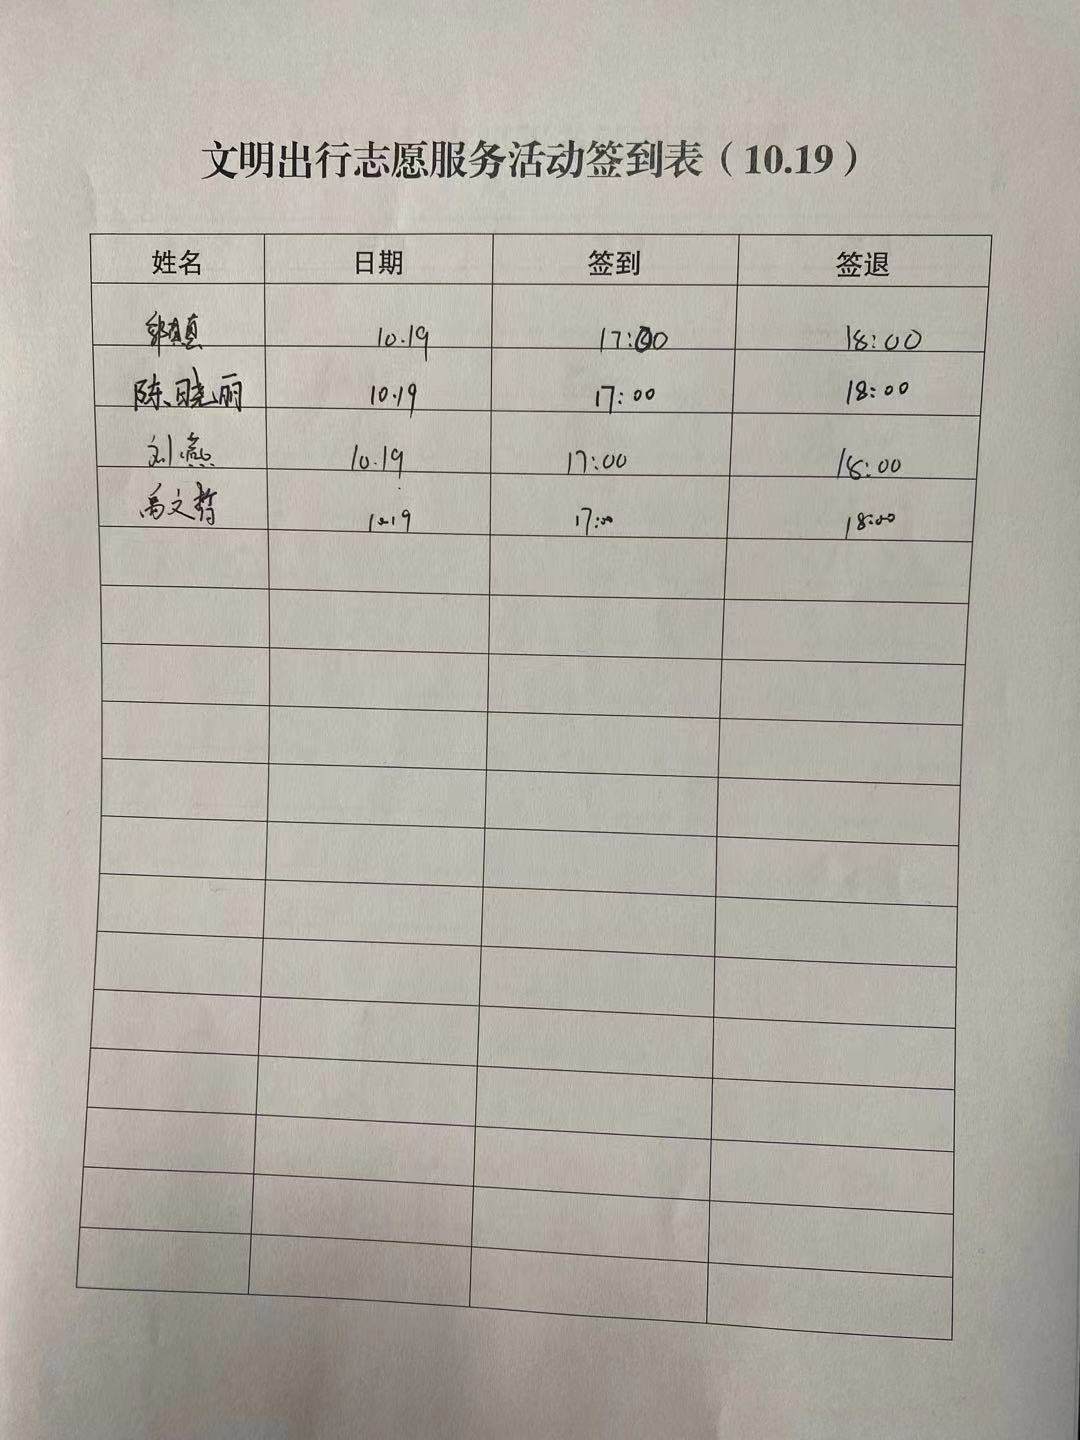 文明出行志愿服务活动签到表（10.19）
姓名 日期 签到 签退
10.19 17:00 18:00
陈晓丽 10.19 17:00 18:00
刘燕 10.19 17:00 18:00
禹文哲 10.19 17:00 18:00